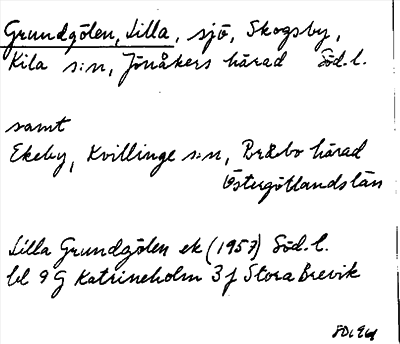 Grundgölen, Lilla, sjö, Skogsby,
Kila s:n, Jönåkers härad Söd.l.
samt
Ekeby, Kvillinge s:n, Bråbo härad
Östergötlands län
Lilla Grundgölen ek (1957) Söd.l.
bl 9 G Katrineholm 3 f Stora Brevik